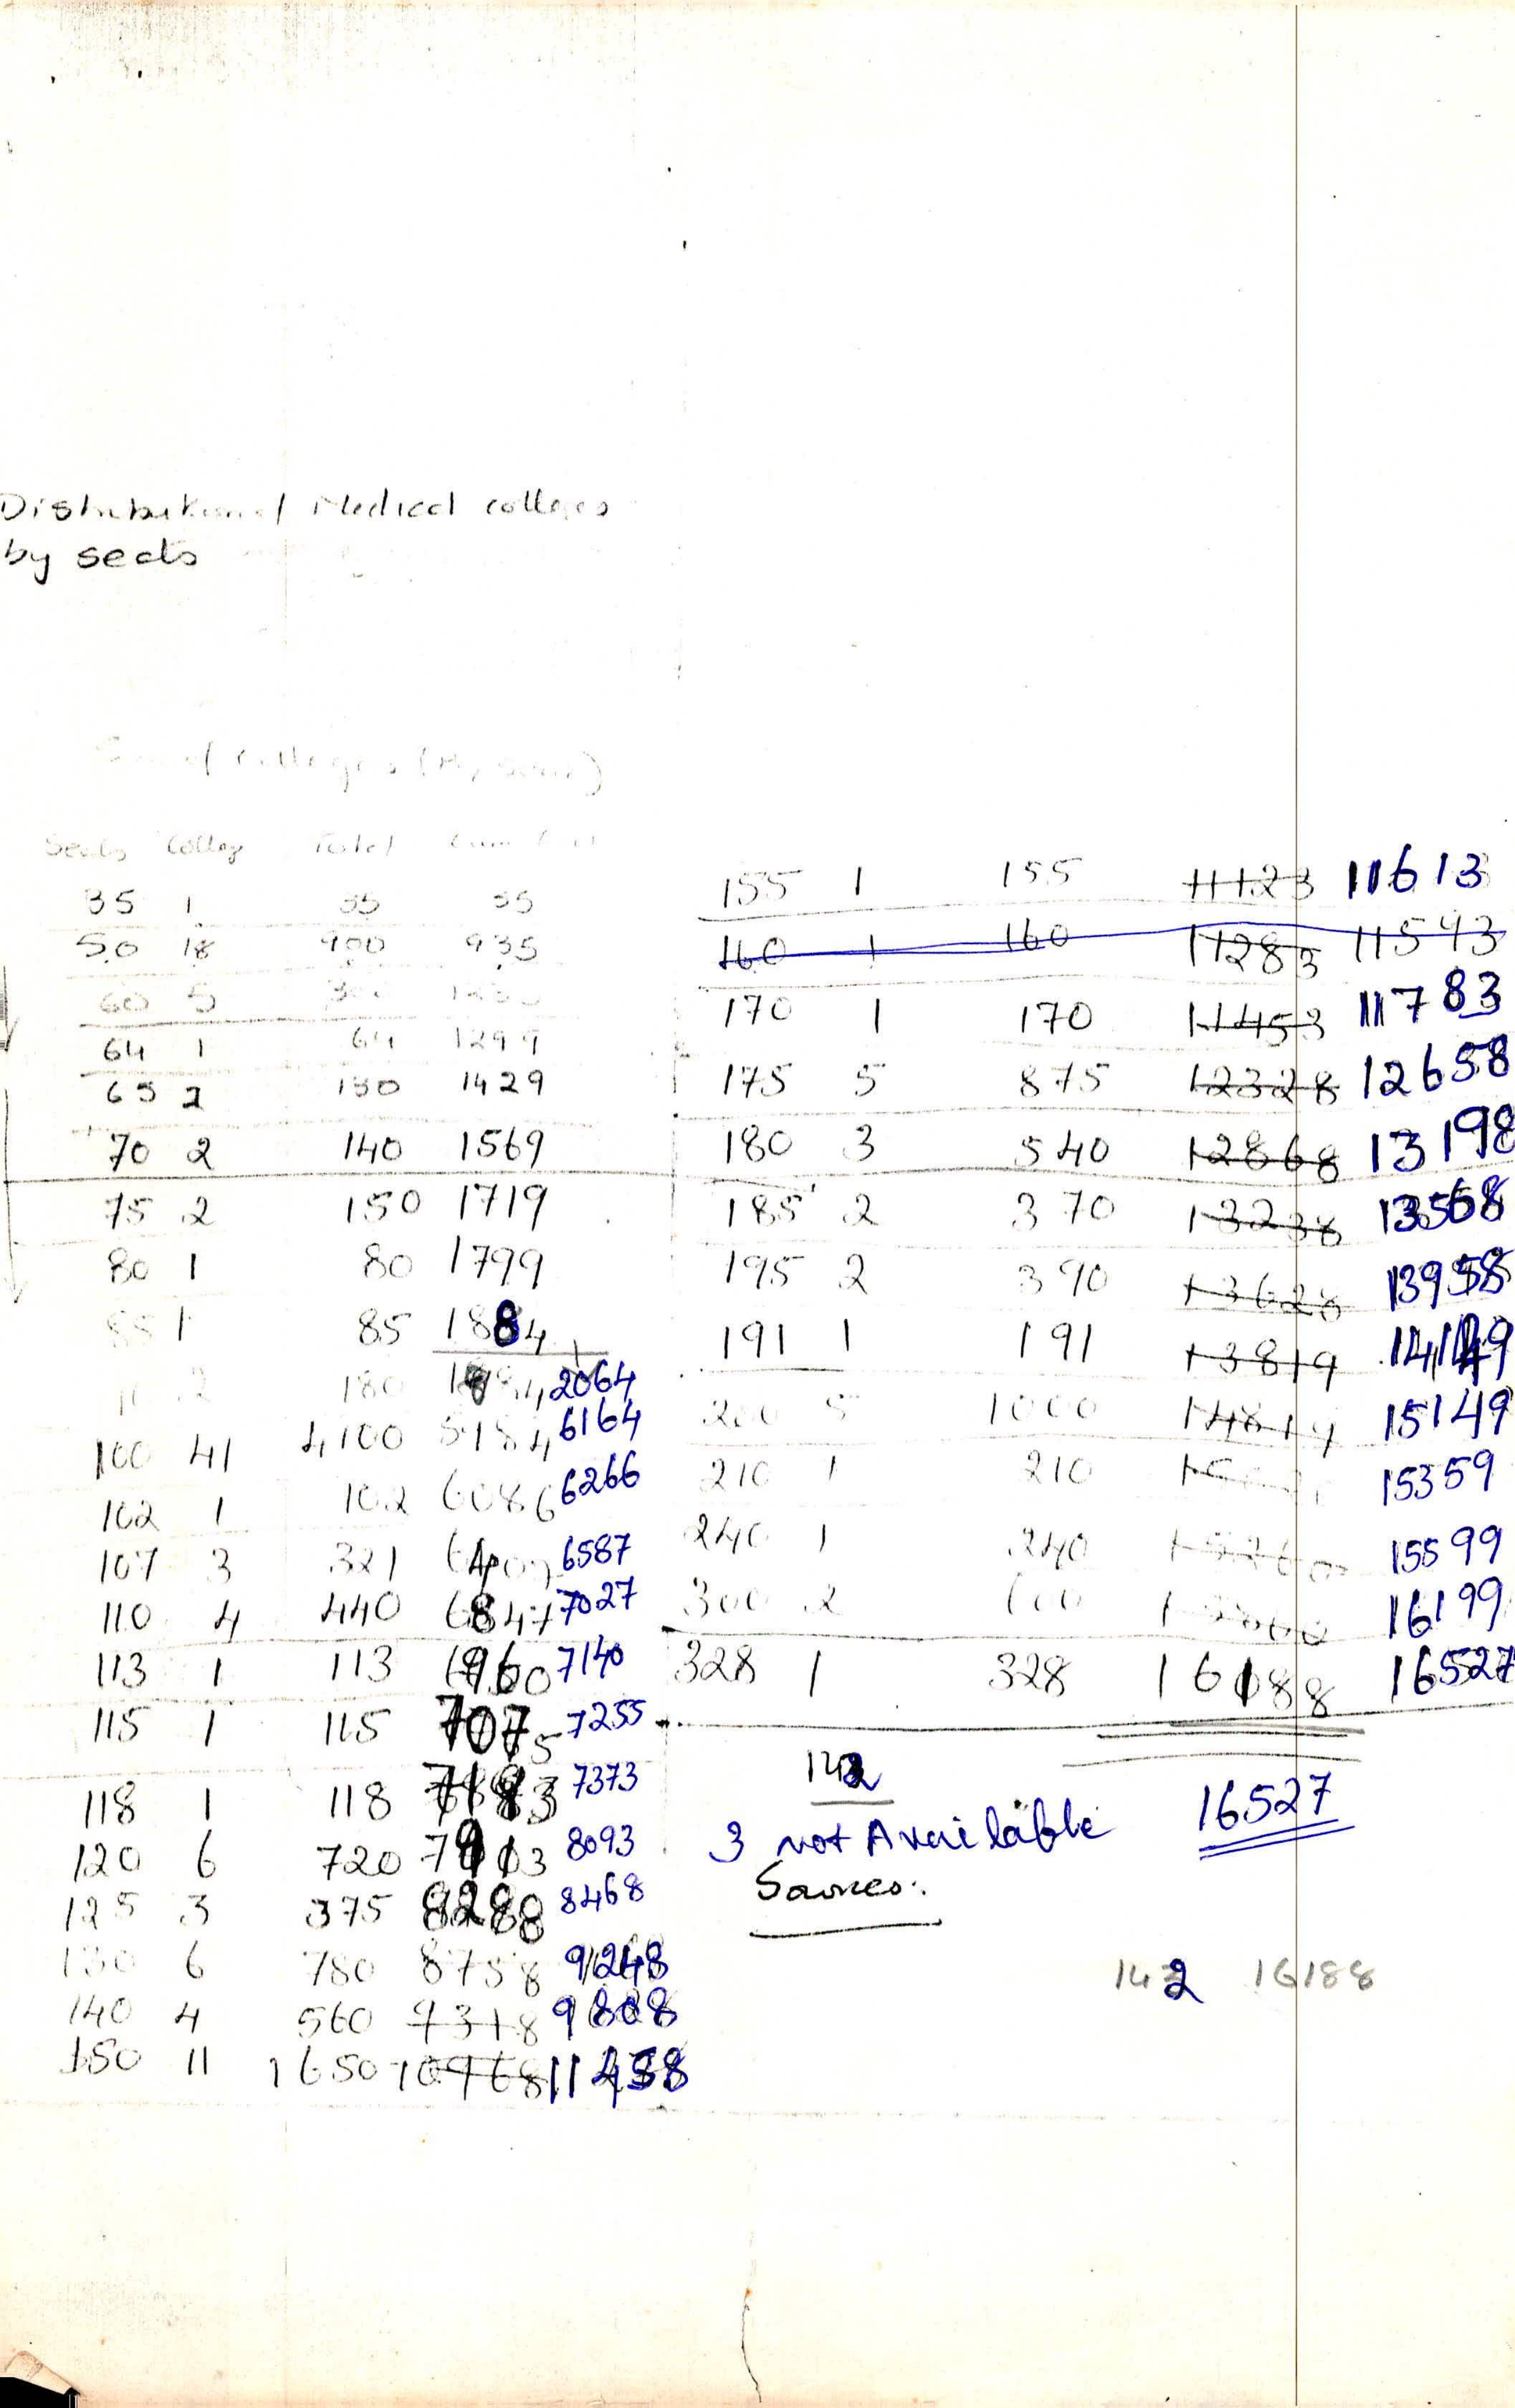 Distribution of Medical colleges
by seats
of Colleges
Seats College Total Cum
35 1 35 35
50 18 900 935
60 5 300
64 1 64 1299
65 2 130 1429
70 2 140 1569
75 2 150 1719
80 1 80 1799
85 1 85 1884
2 180 2064
100 41 4100 6164
102 1 102 6086 6266
107 3 321 6587
110 4 440 6847 7027
113 1 113 6960 7140
115 1 115 7075 7255
118 1 118 7193 7373
120 6 720 8093
125 3 375 8468
130 6 780 8758 9248
140 4 560 9318 9808
150 11 1650 10968 11458
155 1 155 11123 11613
160 1 160 11283 11593
170 1 170 11453 11783
175 5 875 12328 12658
180 3 540 12868 13198
185 2 370 13238 13568
195 2 390 13628 13958
191 1 191 13819 14149
200 5 1000 14819 15149
210 1 210 15359
240 1 240 15599
300 2 600 16199
328 1 328 16188 16527
142
16527
3 not Available
Sources:
142 16188